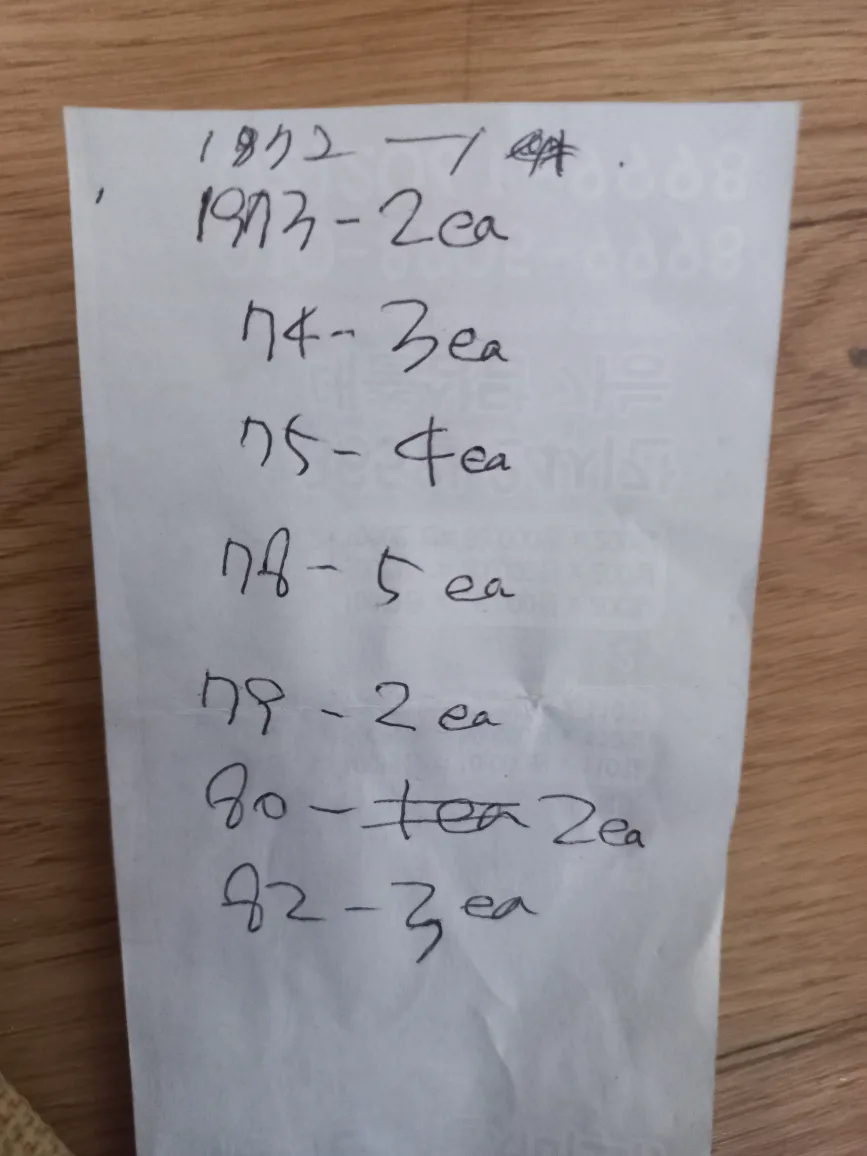 1872 - 1
1973 - 2ea
74 - 3ea
75 - 4ea
78 - 5ea
79 - 2ea
80 - 1ea 2ea
82 - 3ea